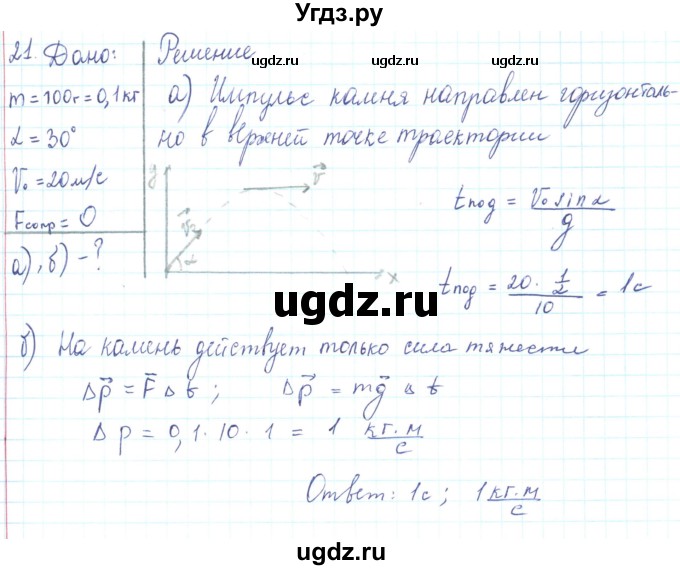 Угдз.ру
21. Дано:
m = 100г = 0,1 кг
α = 30°
V₀ = 20 м/с
Fсопр = 0
а), б) - ?
Решение
gdz.ru
gdz.ru
а) Импульс камня направлен горизонталь-
но в верхней точке траектории
y
v⃗
α
x
tпод = V₀ sin α / g
tпод = 20 · 1/2 / 10 = 1с
ugdz.ru
б) На камень действует только сила тяжести
Δp⃗ = F⃗Δt ; Δp⃗ = mg⃗ Δt
Δp = 0,1 · 10 · 1 = 1 кг·м/с
ugdz.ru
Ответ: 1с ; 1 кг·м/с
ugdz.ru